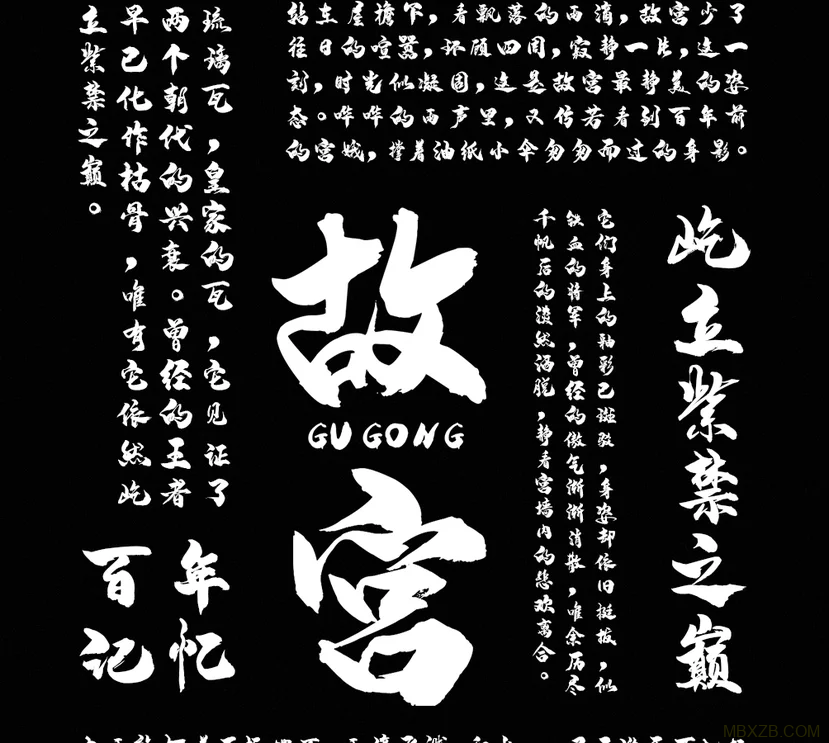 站在屋檐下，看飘落的雨滴，故宫少了
往日的喧嚣，环顾四周，寂静一片，这一
刻，时光似凝固，这是故宫最静美的姿
态。哗哗的雨声里，又仿若看到百年前
的宫娥，撑着油纸小伞匆匆而过的身影。
琉璃瓦，皇家的瓦，它见证了
两个朝代的兴衰。曾经的王者
早已化作枯骨，唯有它依然屹
立紫禁之巅。
故
GU GONG
宫
屹立紫禁之巅
它们身上的釉彩已斑驳，身姿却依旧挺拔，似
铁血的将军，曾经的傲气渐渐消散，唯余历尽
千帆后的淡然洒脱，静看宫墙内的悲欢离合。
百年
记忆
MBXZB.COM